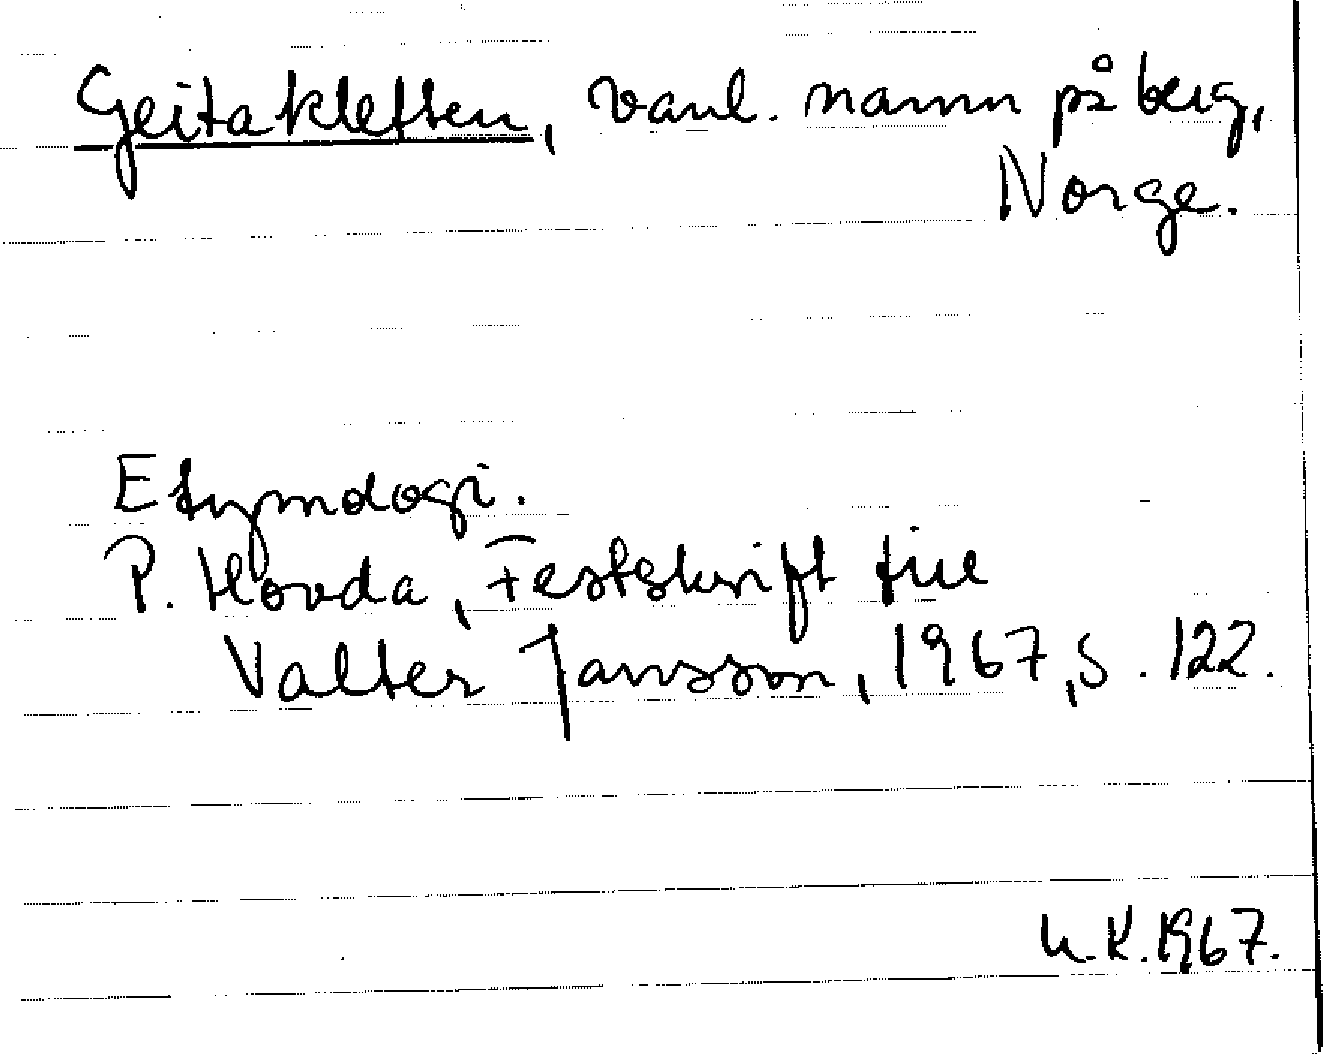 Geitakleften, vanl. namn på berg,
Norge.
Etymologi.
P. Hovda, Festskrift till
Valter Jansson, 1967, s. 122.
U.K. 1967.